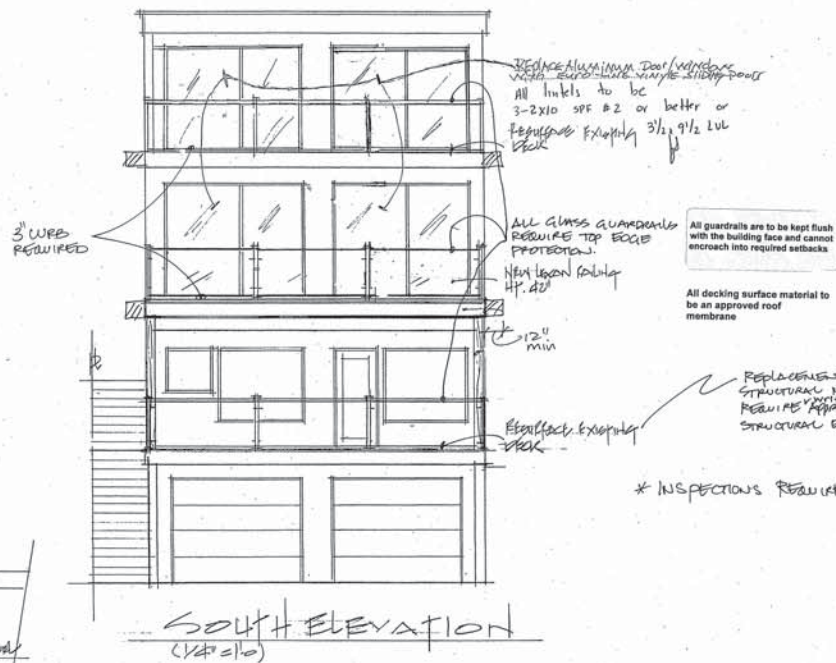 REPLACE ALUMINUM DOOR/WINDOW
WITH EURO-LINE VINYL SLIDING DOORS
All lintels to be
3-2x10 SPF #2 or better or
3½ x 9½ LVL
RESURFACE EXISTING
DECK
3" CURB
REQUIRED
ALL GLASS GUARDRAILS
REQUIRE TOP EDGE
PROTECTION.
NEW RAILING
HT. 42"
All guardrails are to be kept flush
with the building face and cannot
encroach into required setbacks
All decking surface material to
be an approved roof
membrane
12"
min
REPLACEMEN
STRUCTURAL
REQUIRE
STRUCTURAL
RESURFACE EXISTING
DECK
* INSPECTIONS REQUIR
SOUTH ELEVATION
(1/4"=1'-0)